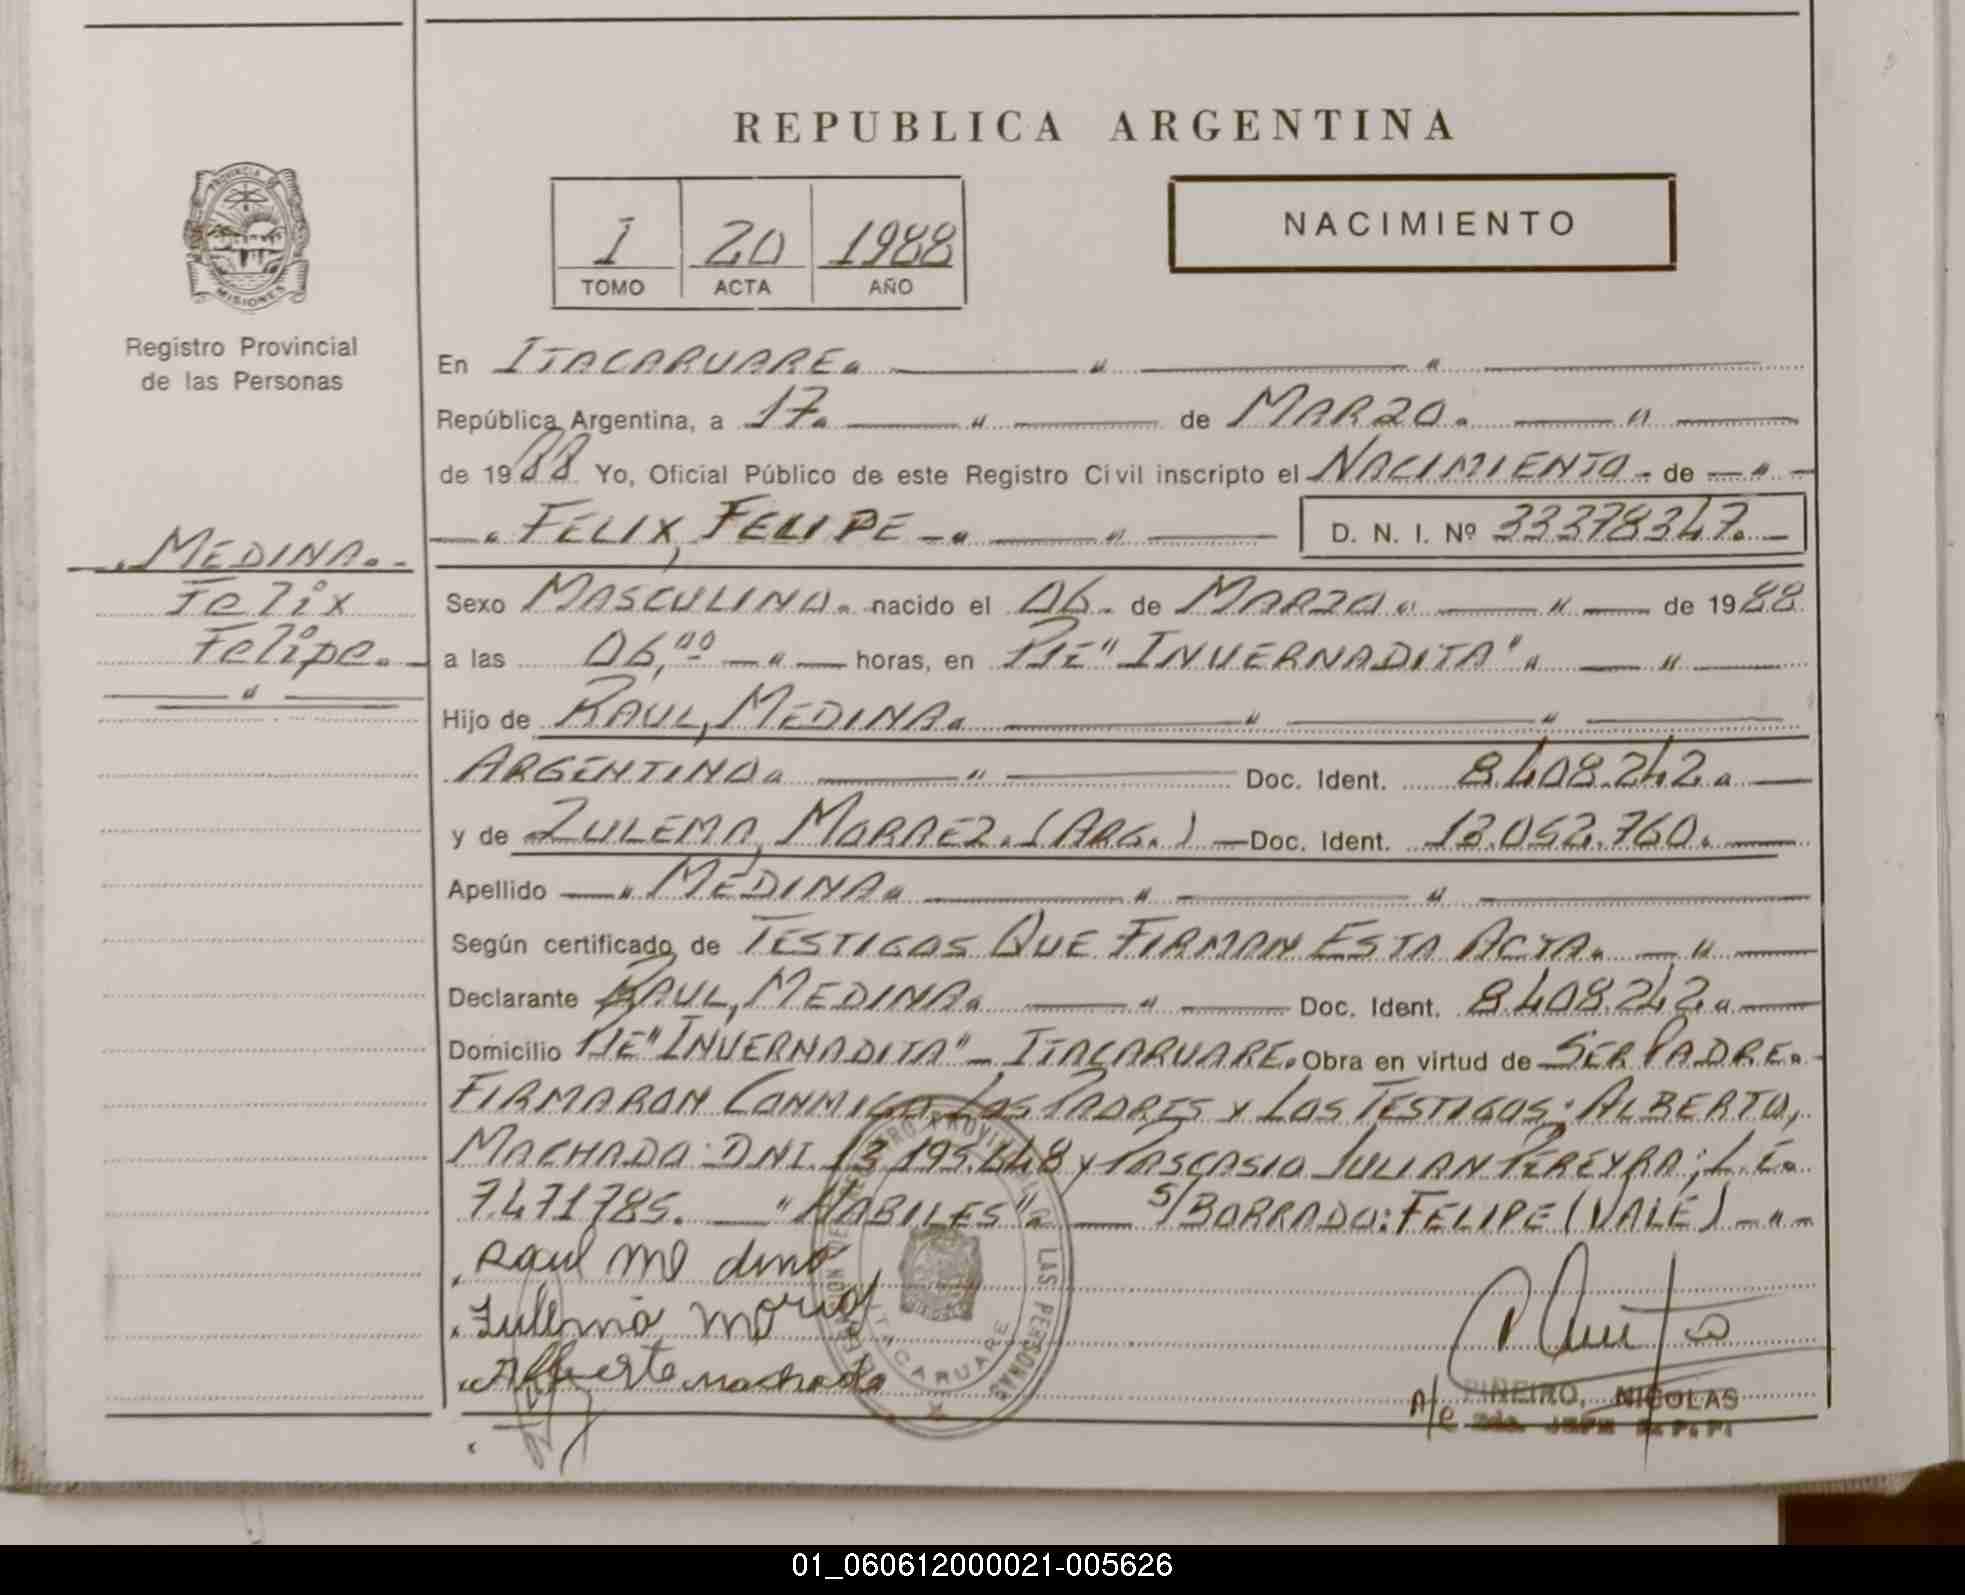 REPUBLICA ARGENTINA
PROVINCIA DE
MISIONES
Registro Provincial
de las Personas
1 20 1988
TOMO ACTA AÑO
NACIMIENTO
En ITACARUARE.
República Argentina, a 17. de MARZO.
de 1988 Yo, Oficial Público de este Registro Civil inscripto el NACIMIENTO - de
FELIX, FELIPE D. N. I. Nº 33378347.
MEDINA.
Felix
Felipe.
Sexo MASCULINO. nacido el 06. de MARZO. de 1988
a las 06,00 horas, en PJE "INVERNADITA"
Hijo de RAUL, MEDINA.
ARGENTINO. Doc. Ident. 8.408.242.
y de ZULEMA, MORREZ. (ARG.) Doc. Ident. 13.052.760.
Apellido MEDINA.
Según certificado de TESTIGOS QUE FIRMAN ESTA ACTA.
Declarante RAUL, MEDINA. Doc. Ident. 8.408.242.
Domicilio PJE "INVERNADITA" - ITACARUARE. Obra en virtud de SER PADRE.
FIRMARON CONMIGO LOS PADRES Y LOS TESTIGOS: ALBERTO,
MACHADO: DNI. 13.195.648 y PASCASIO JULIAN PEREYRA; L.E.
7.471785. "HABILES". S/BORRADO: FELIPE (VALE)
Raul Me dina
Zulema
Alberto machado
LAS PERSONAS
ITACARUARE
A/C PIÑEIRO, NICOLAS
01_060612000021-005626